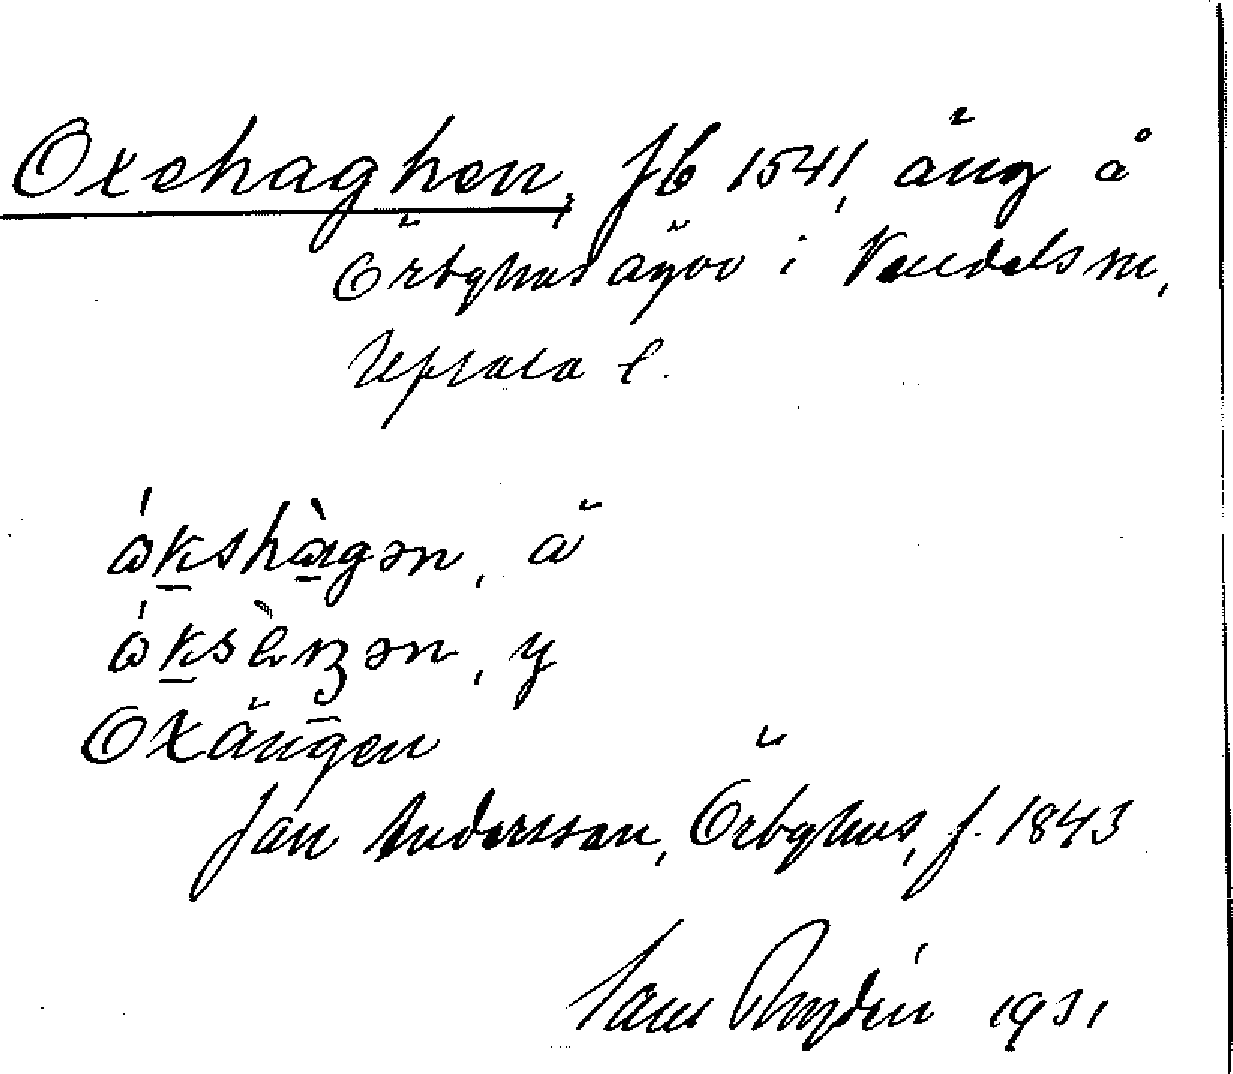 Oxehaghen, Jb 1541, äng å
Örbyhus ägor i Vendels sn,
Uppsala l.
ákshàgən, ä
áksèŋən, y
Oxängen
Jan Andersson, Örbyhus, f. 1843
Rydén 1931